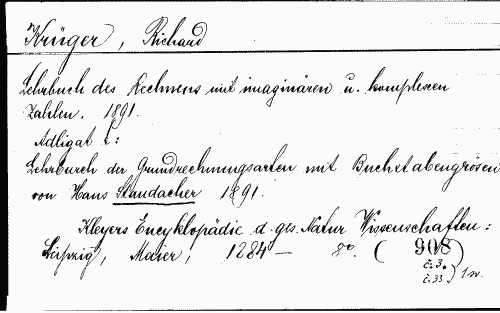 Krüger, Richard
Lehrbuch des Rechnens mit imaginären u. komplexen
Zahlen. 1891.
Adligat č:
Lehrburch der Grundrechnungsarten mit Buchstabengrösen
von Hans Staudacher 1891.
Kleyers Encyklopädie d. ges. Natur Wissenschaften:
Leipzig, Maier, 1884 — 8° (908)
č. 3.
č. 33 } 1 sv.